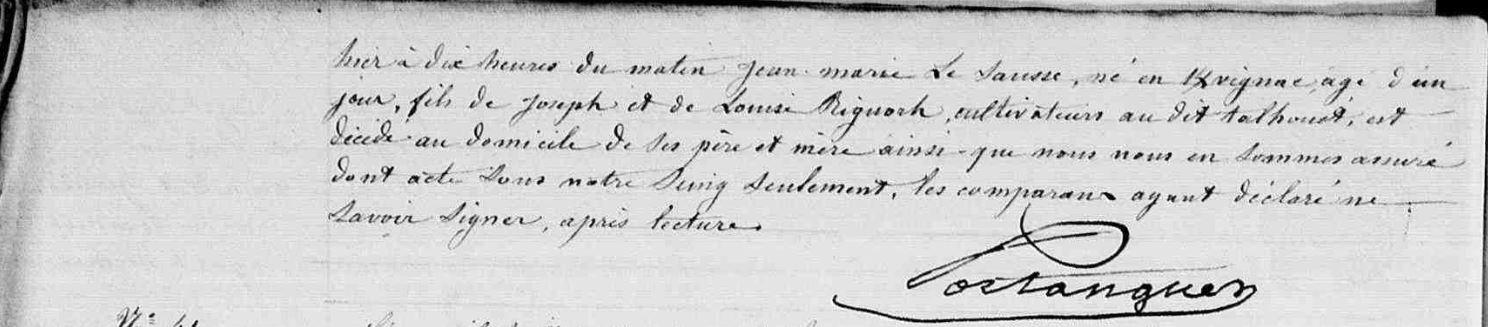 hier à dix heures du matin Jean marie Le Sausse, né en Kvignac, agé d'un
jour, fils de Joseph et de Louise Riguorh, cultivateurs au dit talhouët, est
décédé au domicile de ses père et mère ainsi que nous nous en sommes assuré
dont acte sous notre seing seulement, les comparans ayant déclaré ne
savoir signer, après lecture.
Postanguen
N°